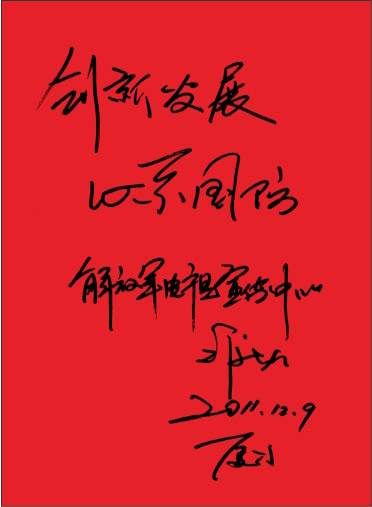 创新发展
心系国防
解放军电视宣传中心
2011.12.9
厦门